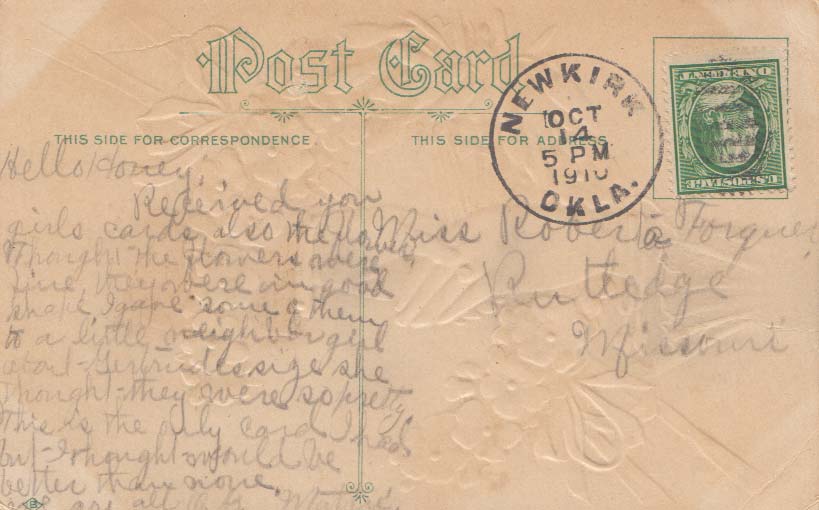 Post Card
THIS SIDE FOR CORRESPONDENCE.
THIS SIDE FOR ADDRESS.
NEWKIRK
OCT
14
5 PM
1910
OKLA.
ONE CENT
U.S. POSTAGE
Hello Honey,
Received you
girls cards also the flowers
Thought the flowers were
fine, they were in good
shape I gave some of them
to a little neighbor girl
about Gertrudes size she
thought they were so pretty
This is the only card I had
but I thought would be
better than none.
are all
Miss Roberta Forquer,
Rutledge
Missouri